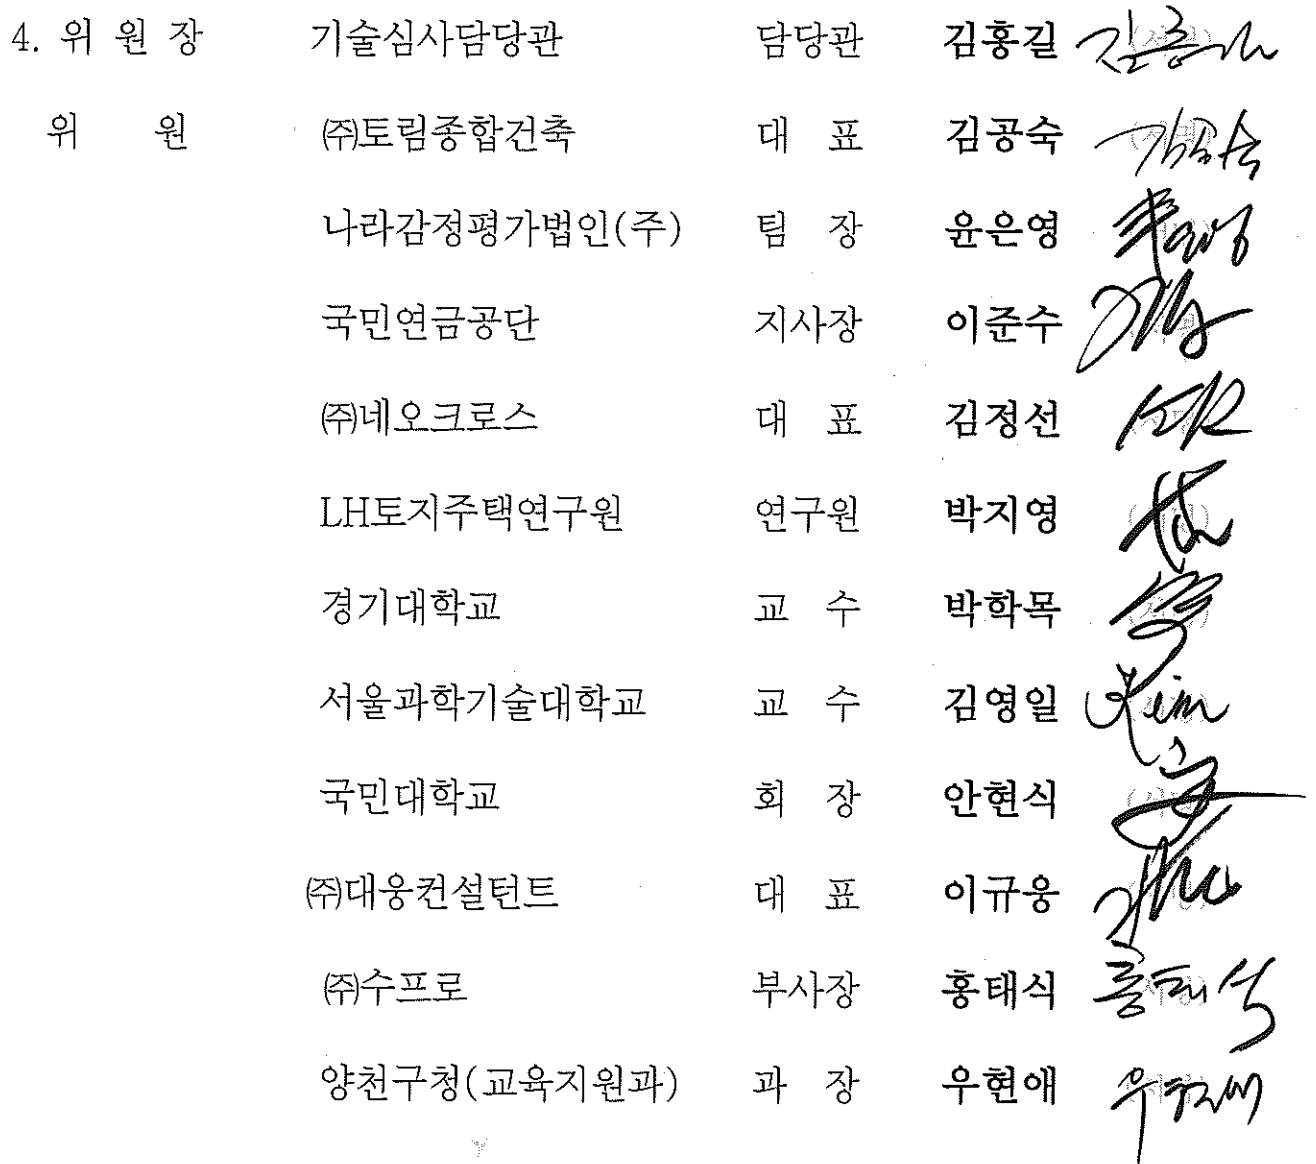 4. 위 원 장 기술심사담당관 담당관 김홍길 (서명)
위 원 ㈜토림종합건축 대 표 김공숙
나라감정평가법인(주) 팀 장 윤은영
국민연금공단 지사장 이준수
㈜네오크로스 대 표 김정선
LH토지주택연구원 연구원 박지영
경기대학교 교 수 박학목
서울과학기술대학교 교 수 김영일 Kim
국민대학교 회 장 안현식
㈜대웅컨설턴트 대 표 이규웅
㈜수프로 부사장 홍태식 홍태식
양천구청(교육지원과) 과 장 우현애 우현애